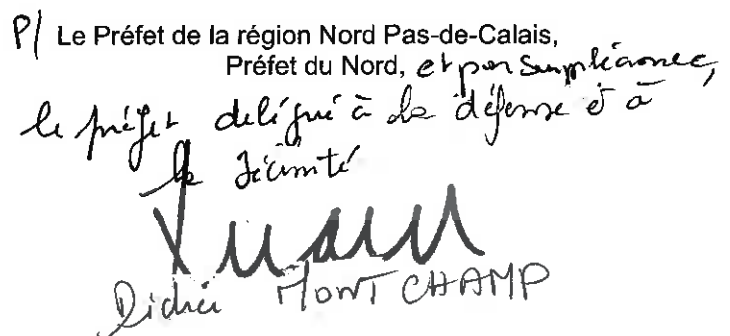 P/ Le Préfet de la région Nord Pas-de-Calais,
Préfet du Nord, et par suppléance,
le préfet délégué à la défense et à
la sécurité
Didier MONTCHAMP